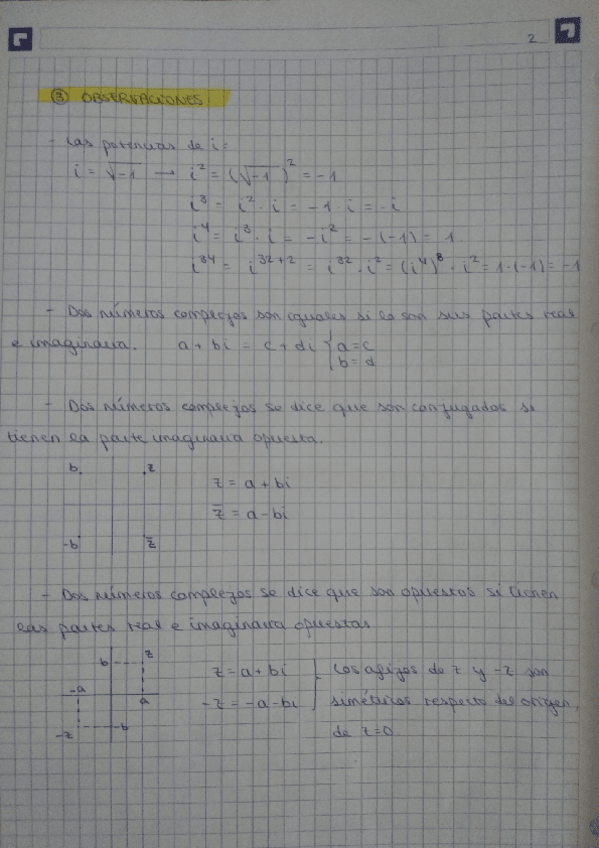 2
③ OBSERVACIONES
- Las potencias de i:
i = √-1 → i² = (√-1)² = -1
i³ = i² · i = -1 · i = -i
i⁴ = i³ · i = -i² = -(-1) = 1
i³⁴ = i³²⁺² = i³² · i² = (i⁴)⁸ · i² = 1 · (-1) = -1
- Dos números complejos son iguales si lo son sus partes real
e imaginaria. a + bi = c + di { a = c
b = d
- Dos números complejos se dice que son conjugados si
tienen la parte imaginaria opuesta.
b z
z = a + bi
z̄ = a - bi
-b z̄
- Dos números complejos se dice que son opuestos si tienen
las partes real e imaginaria opuestas
b z
-a a
-z -b
z = a + bi } Los afijos de z y -z son
-z = -a - bi } simétricos respecto del origen,
de z=0